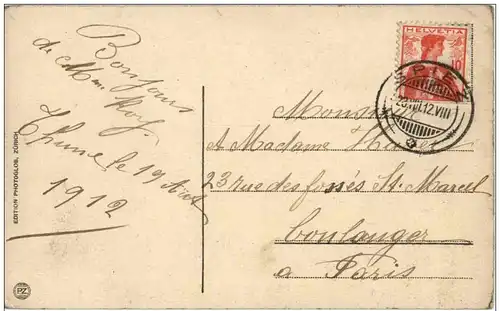 Bonjour
de Mme Roy.
Thune le 19 Aout
1912
EDITION PHOTOGLOB, ZÜRICH
PZ
HELVETIA
10
SPIEZ
Monsieur
A Madame
23 rue des fossés St. Marcel
boulanger
a Paris